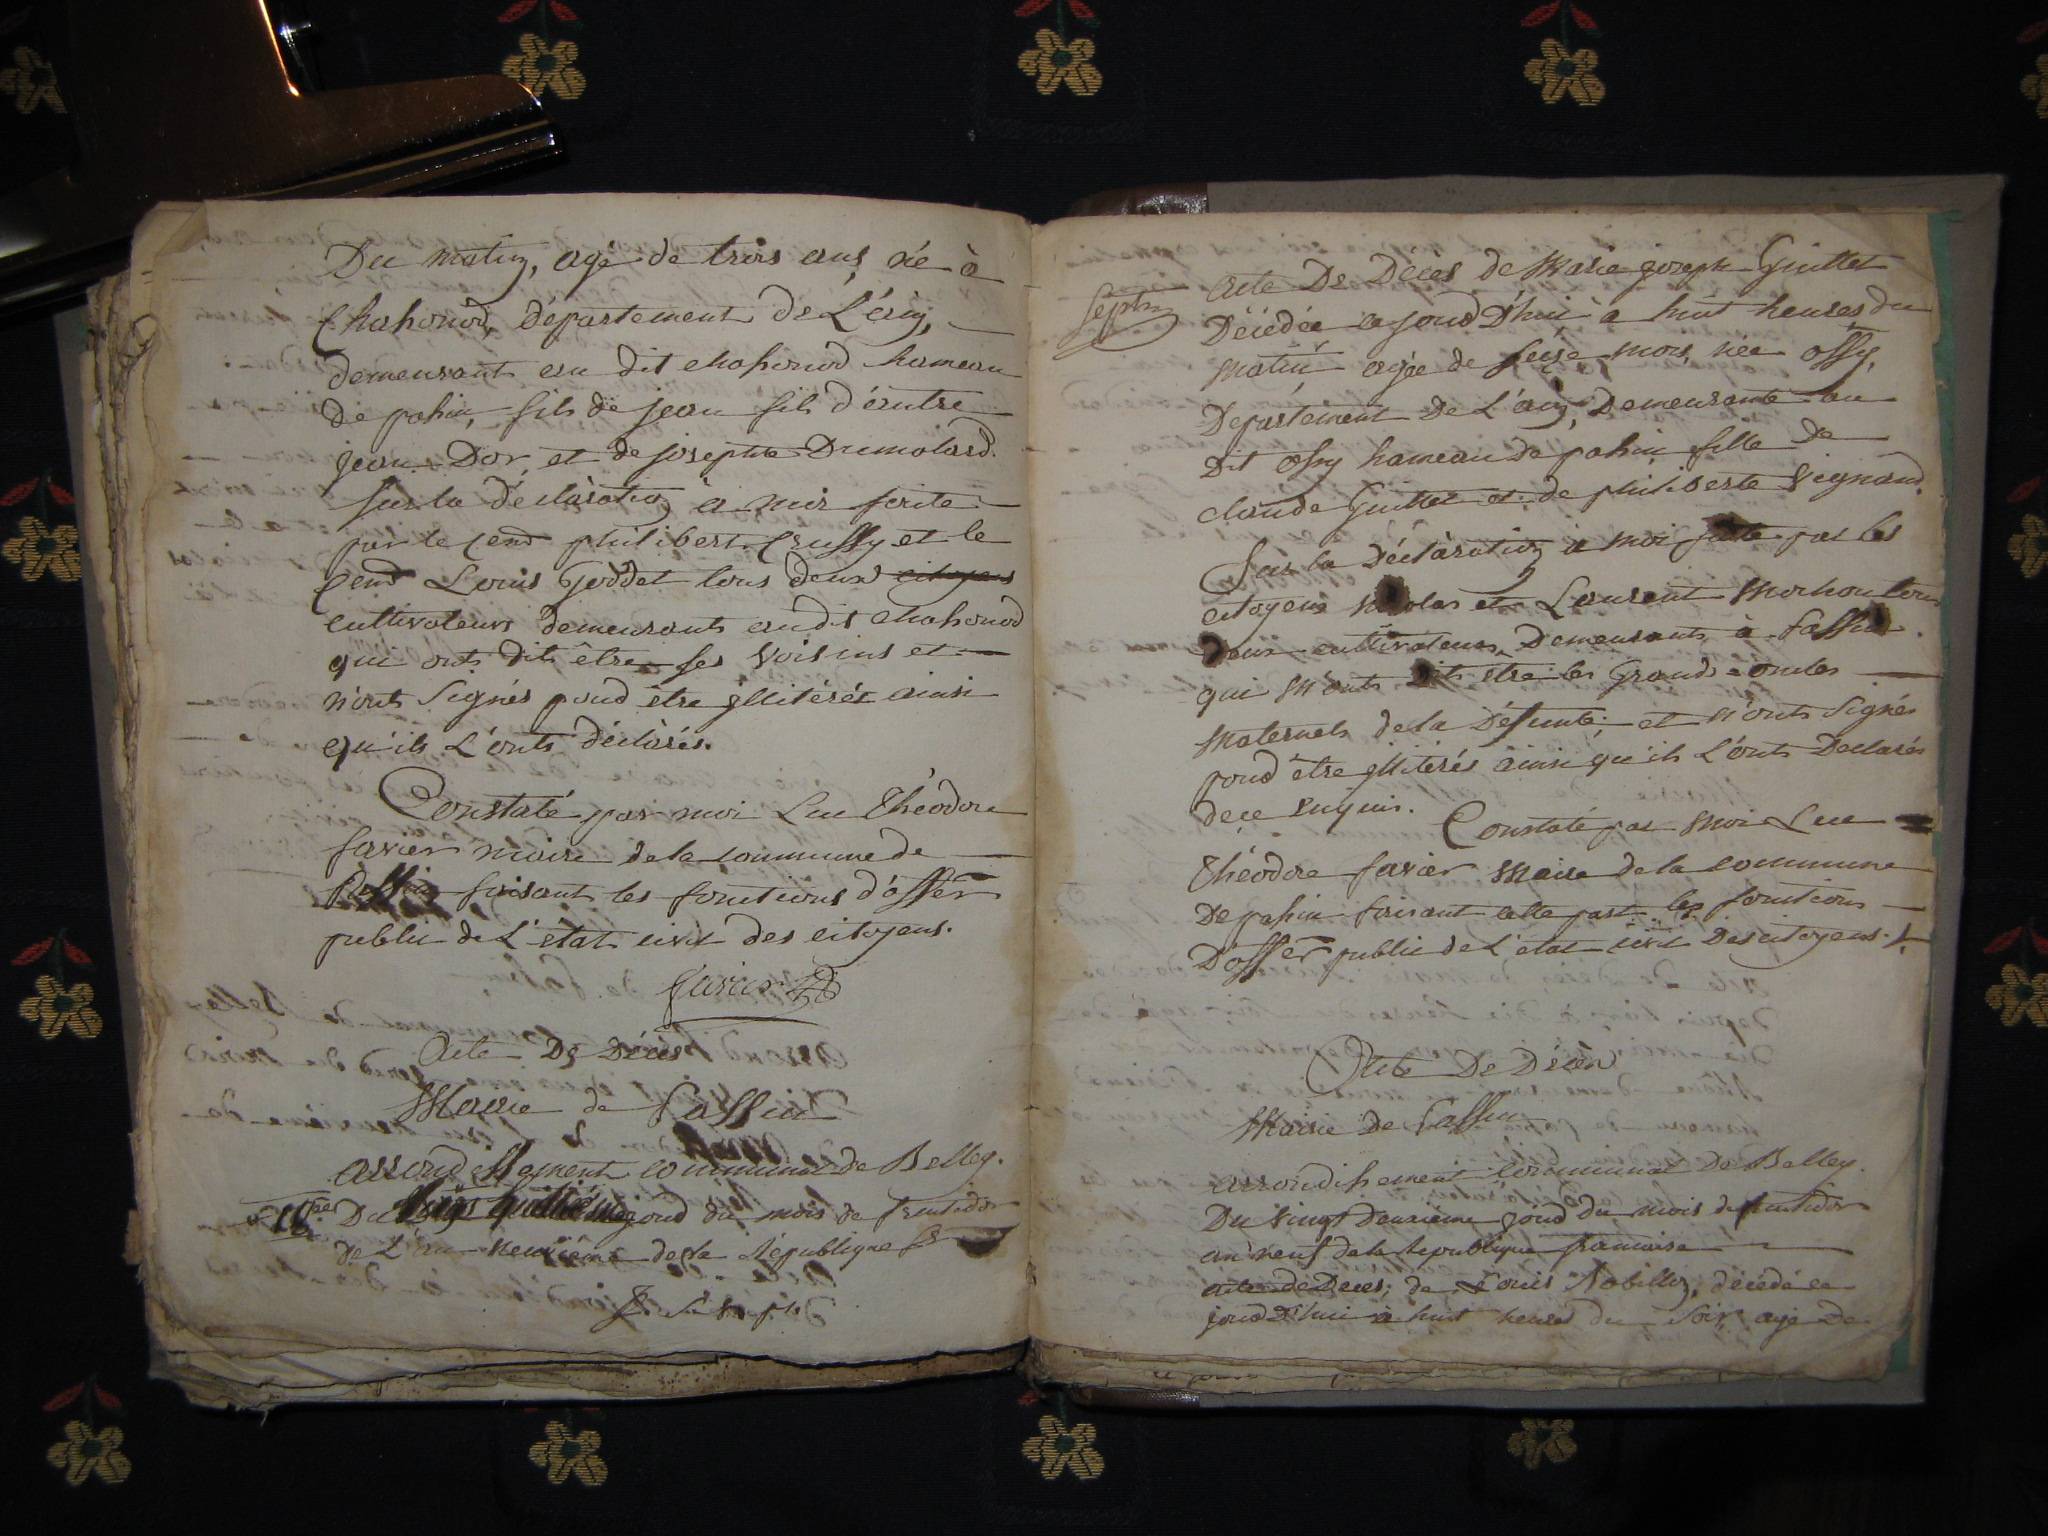 Du matin, agé de trois ans né à
Chahonod, département de L'ain,
demeurant au dit chahonod hameau
de pahin, fils de jean fils d'autre
jean Dor, et de josephte Dumolard.
sur la déclaration à moi faite
par le cend philibert Crussy et le
cend Louis Goddet tous deux citoyens
cultivateurs demeurants audit chahonod
qui onts dits être ses voisins et
n'onts signés poud être illitérés ainsi
qu'ils L'onts déclarés.
Constaté par moi Luc Théodore
favier maire de la commune de
faisant les fonctions d'offer
public de L'état civil des citoyens.
favier
Acte De Décès
Mairie de Passin
arrondissement communal de Belley.
Du joud du mois de fructidor
de L'an neuvième de la République
acte De Décès de Marie joseph Guillet
septn
Décédée ce joud D'hui à huit heures du
matin agée de seize mois, née ossy,
Departement De L'ain, Demeurante au
Dit ossy hameau de pahin fille de
claude Guillet et de philiberte Vignand.
Sur la Déclaration à moi faite par les
citoyens Nicolas et Laurent Mochon tous
Deux cultivateurs Demeurants à Passin
qui M'onts Dits etre les Grands oncles
Maternels de la Défunte; et N'onts Signés
poud être illitérés ainsi qu'ils L'onts Declarés
de ce enquis. Constaté par Moi Luc
Théodore favier Maire de la commune
De pahin faisant cette part les fonctions
D'offer public de L'etat civil Des citoyens.
Acte De Décès
Mairie De Passin
arrondissement Communal De Belley.
Du Vingt deuxieme joud Du mois de fructidor
an neuf de la Republique francaise
acte de Deces; de Louis Robillon, décédé ce
joud D'hui à huit heures du Soir agé De